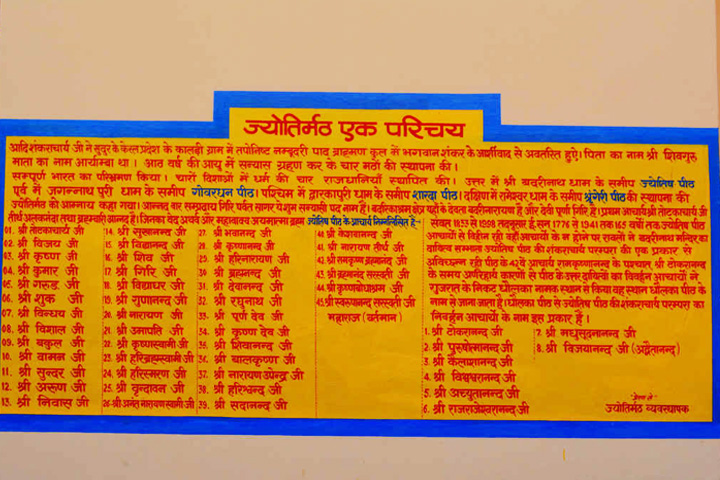 ज्योतिर्मठ एक परिचय
आदिशंकराचार्य जी ने सुदूर के केरल प्रदेश के कालड़ी ग्राम में तपोनिष्ट नम्बूदरी पाद ब्राह्मण कुल में भगवान शंकर के आर्शीवाद से अवतरित हुऐ। पिता का नाम श्री शिवगुरु
माता का नाम आर्याम्बा था । आठ वर्ष की आयु में सन्यास ग्रहण कर के चार मठों की स्थापना की।
सम्पूर्ण भारत का परिभ्रमण किया। चारों दिशाओं में धर्म की चार राजधानियाँ स्थापित की। उत्तर में श्री बदरीनाथ धाम के समीप ज्योतिष पीठ
पूर्व में जगन्नाथ पुरी धाम के समीप गोवरधन पीठ। पश्चिम में द्वारकापुरी धाम के समीप शारदा पीठ। दक्षिण में रामेश्वर धाम के समीप श्रृंगेरी पीठ की स्थापना की
ज्योतिर्मठ को आम्नाय कहा गया। आनन्द वार सम्प्रदाय गिरि पर्वत सागर ये शुभ सन्यासी पद नाम हैं। बदरिकाश्रम क्षेत्र यहाँ के देवता बदरीनारायण हैं और देवी पूर्णा गिरि हैं। प्रथम आचार्य श्री तोटकाचार्य जी
तीर्थ अलकनंदा तथा ब्रह्मचारी आनन्द हैं। जिनका वेद अथर्व और महावाक्य अयमात्मा ब्रह्म ज्योतिष पीठ के आचार्य निम्नलिखित हैं-
01. श्री तोटकाचार्य जी
02. श्री विजय जी
03. श्री कृष्ण जी
04. श्री कुमार जी
05. श्री गरुड़ जी
06. श्री शुक जी
07. श्री विन्धय जी
08. श्री विशाल जी
09. श्री बकुल जी
10. श्री वामन जी
11. श्री सुन्दर जी
12. श्री अरूण जी
13. श्री निवास जी
14. श्री सुखानन्द जी
15. श्री विद्यानन्द जी
16. श्री शिव जी
17. श्री गिरि जी
18. श्री विद्याधर जी
19. श्री गुणानन्द जी
20. श्री नारायण जी
21. श्री उमापति जी
22. श्री कृष्णस्वामी जी
23. श्री हरिब्रह्मस्वामी जी
24. श्री हरिस्मरण जी
25. श्री वृन्दावन जी
26. श्री अनंत नारायण स्वामी जी
27. श्री भवानन्द जी
28. श्री कृष्णानन्द जी
29. श्री हरिनारायण जी
30. श्री ब्रह्मनन्द जी
31. श्री देवानन्द जी
32. श्री रघुनाथ जी
33. श्री पूर्ण देव जी
34. श्री कृष्ण देव जी
35. श्री शिवानन्द जी
36. श्री बालकृष्ण जी
37. श्री नारायण उपेन्द्र जी
38. श्री हरिश्चन्द्र जी
39. श्री सदानन्द जी
40. श्री केशवानन्द जी
41. श्री नारायण तीर्थ जी
42. श्री रामकृष्ण ब्रह्मानन्द जी
43. श्री ब्रह्मानंद सरस्वती जी
44. श्री कृष्णबोधाश्रम जी
45. श्री स्वरूपानन्द सरस्वती जी
महाराज (वर्तमान)
सवत् 1833 से 1998 तद्नुसार ई. सन् 1776 से 1941 तक 165 वर्षों तक ज्योतिष पीठ
आचार्यों से विहीन रही वहीं आचार्यों के न होने पर रावलों ने बदरीनाथ मन्दिर का
दायित्व सम्भाला ज्योतिष पीठ की शंकराचार्य परम्परा की एक प्रकार से
अविच्छन्न रही पीठ के 42वे आचार्य रामकृष्णानन्द के पश्चात् श्री टोकरानन्द
के समय अपरिहार्य कारणों से पीठ के उत्तर दायित्वों का निर्वहन आचार्यों ने
गुजरात के निकट धोलका नामक स्थान से किया वह स्थान धोलका पीठ के
नाम से जाना जाता है। धोलका पीठ से ज्योतिष पीठ की शंकराचार्य परम्परा का
निर्वहन आचार्यों के नाम इस प्रकार हैं ।
1. श्री टोकरानन्द जी
2. श्री पुरुषोत्मानन्द जी
3. श्री कैलाशानन्द जी
4. श्री विश्वश्वरानन्द जी
5. श्री अच्युतानन्द जी
6. श्री राजराजेश्वरानन्द जी
7. श्री मधुसूदनानन्द जी
8. श्री विजयानन्द जी (अद्वैतानन्द)
ज्योतिर्मठ व्यवस्थापक